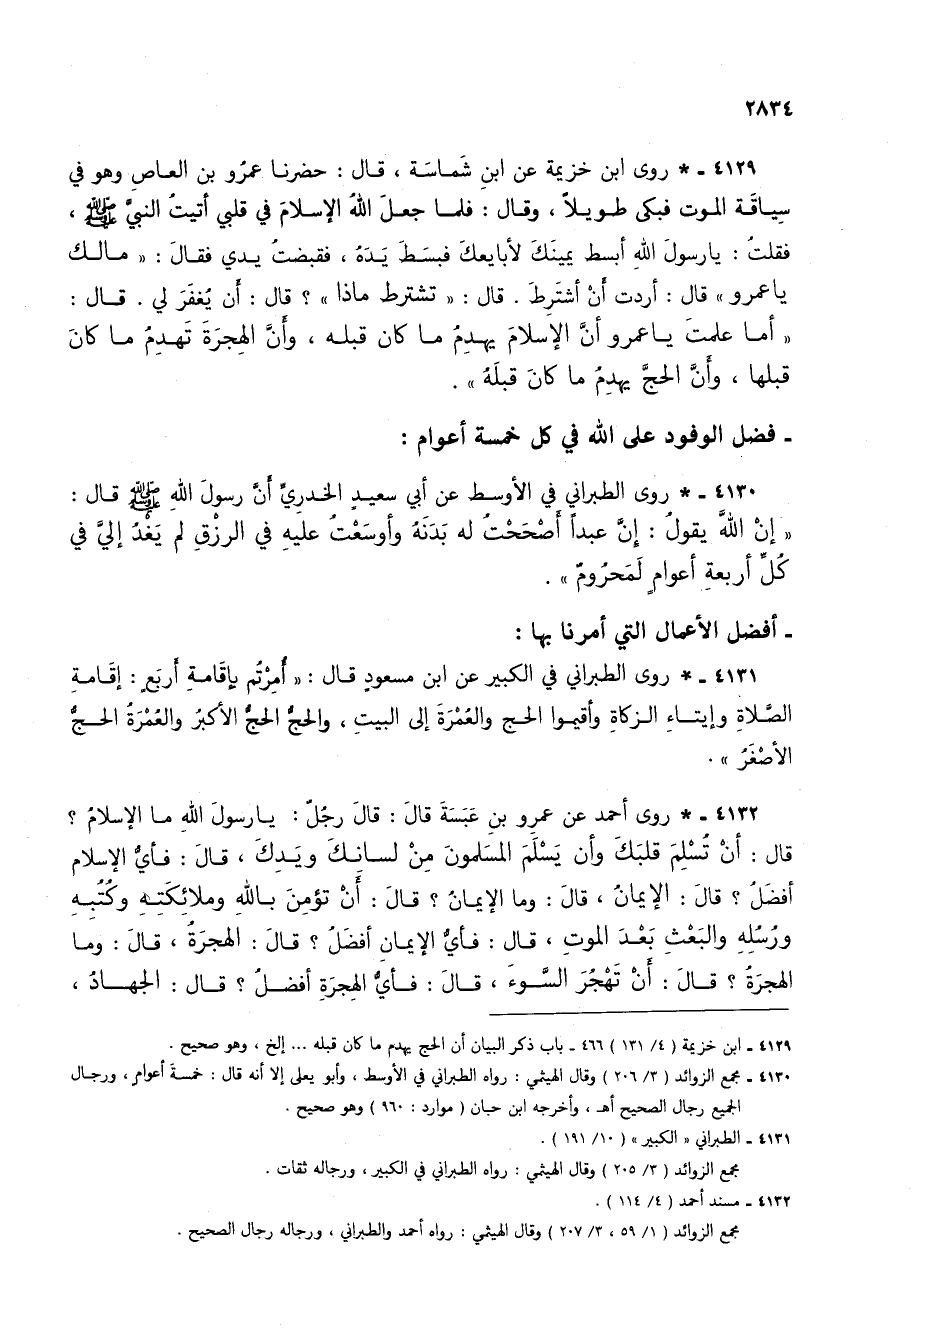 ٢٨٣٤
٤١٢٩ ـ * روى ابن خزيمة عن ابنِ شَمَاسَة ، قـال : حضرنـا عمرُو بن العـاصِ وهو في
سياقَة الموت فبكى طـويـلاً ، وقـال : فلمـا جعـلَ اللهُ الإسلامَ في قلبي أتيتُ النبيَّ ﷺ ،
فقلتُ : يارسولَ اللهِ أبسط يمينَكَ لأبايعكَ فبسَـطَ يَدَهُ ، فقبضتُ يـدي فقـالَ : « مـالــك
ياعمرو » قال : أردت أَنْ أشتَرِطَ . قال : « تشترط ماذا » ؟ قال : أَن يُغفَرَ لي . قــال :
« أمـا علمتَ يـاعمرو أنَّ الإسلامَ يهـدِمُ مـا كان قبلـه ، وأَنَّ الهجرَةَ تَهـدِمُ مـا كانَ
قبلها ، وأَنَّ الحجَّ يهدِمُ ما كانَ قبلَهُ » .
ـ فضل الوفود على الله في كل خمسة أعوام :
٤١٣٠ ـ * روى الطبراني في الأوسط عن أبي سعيـدٍ الخـدريِّ أنَّ رسولَ اللهِ ﷺ قـال :
« إنْ اللهَ يقولُ : إنَّ عبداً أصْحَحْتُ له بَدَنَهُ وأوسَعْتُ عليهِ في الرزْقِ لم يَغْدُ إليَّ في
كُلِّ أربعةِ أعوامٍ لَمَحرُومٌ » .
ـ أفضل الأعمال التي أمرنا بها :
٤١٣١ ـ * روى الطبراني في الكبير عن ابن مسعودٍ قـال : « أُمِرْتُم بإقَامـةِ أَربَعٍ : إقَامـةِ
الصَّلاةِ وإيتـاءِ الـزكاةِ وأقيموا الحـج والعُمْرَةَ إلى البيتِ ، والحجُّ الحجُّ الأكبرُ والعُمْرَةُ الحـجُّ
الأصْغَرُ » .
٤١٣٢ ـ * روى أحمد عن عمرو بنِ عَبَسَةَ قالَ : قالَ رجُلٌ : يـارسولَ اللهِ مـا الإسلامُ ؟
قال : أنْ تُسْلِمَ قلبَكَ وأن يَسْلَمَ المسلمونَ مِنْ لسـانِـكَ ويَـدِكَ ، قـالَ : فـأيُّ الإسلام
أفضَلُ ؟ قالَ : الإيمَانُ ، قالَ : وما الإيمَانُ ؟ قـالَ : أَنْ تؤمِنَ بـاللهِ وملائكتِـهِ وكُتُبِـهِ
ورُسُلِهِ والبَعْثِ بَعْـدَ الموتِ ، قـال : فـأيُّ الإيمَانِ أفضَلُ ؟ قـالَ : الهجرَةُ ، قـالَ : ومـا
الهجرَةُ ؟ قـالَ : أَنْ تَهْجُرَ السُّـوءَ ، قـالَ : فـأيُّ الهجرَةِ أفضـلُ ؟ قـال : الجهـادُ ،
٤١٢٩ ـ ابن خزيمة ( ٤/ ١٣١ ) ٤٦٦ ـ باب ذكر البيان أن الحج يهدم ما كان قبله ... إلخ ، وهو صحيح .
٤١٣٠ ـ مجمع الزوائد ( ٣/ ٢٠٦ ) وقال الهيثمي : رواه الطبراني في الأوسط ، وأبو يعلى إلا أنه قال : خمسةَ أعوام ، ورجـال
الجميع رجال الصحيح أهـ ، وأخرجه ابن حبان ( موارد : ٩٦٠ ) وهو صحيح .
٤١٣١ ـ الطبراني « الكبير » ( ١٠/ ١٩١ ) .
مجمع الزوائد ( ٣/ ٢٠٥ ) وقال الهيثمي : رواه الطبراني في الكبير ، ورجاله ثقات .
٤١٣٢ ـ مسند أحمد ( ٤/ ١١٤ ) .
مجمع الزوائد ( ١/ ٥٩ ، ٣/ ٢٠٧ ) وقال الهيثمي : رواه أحمد والطبراني ، ورجاله رجال الصحيح .